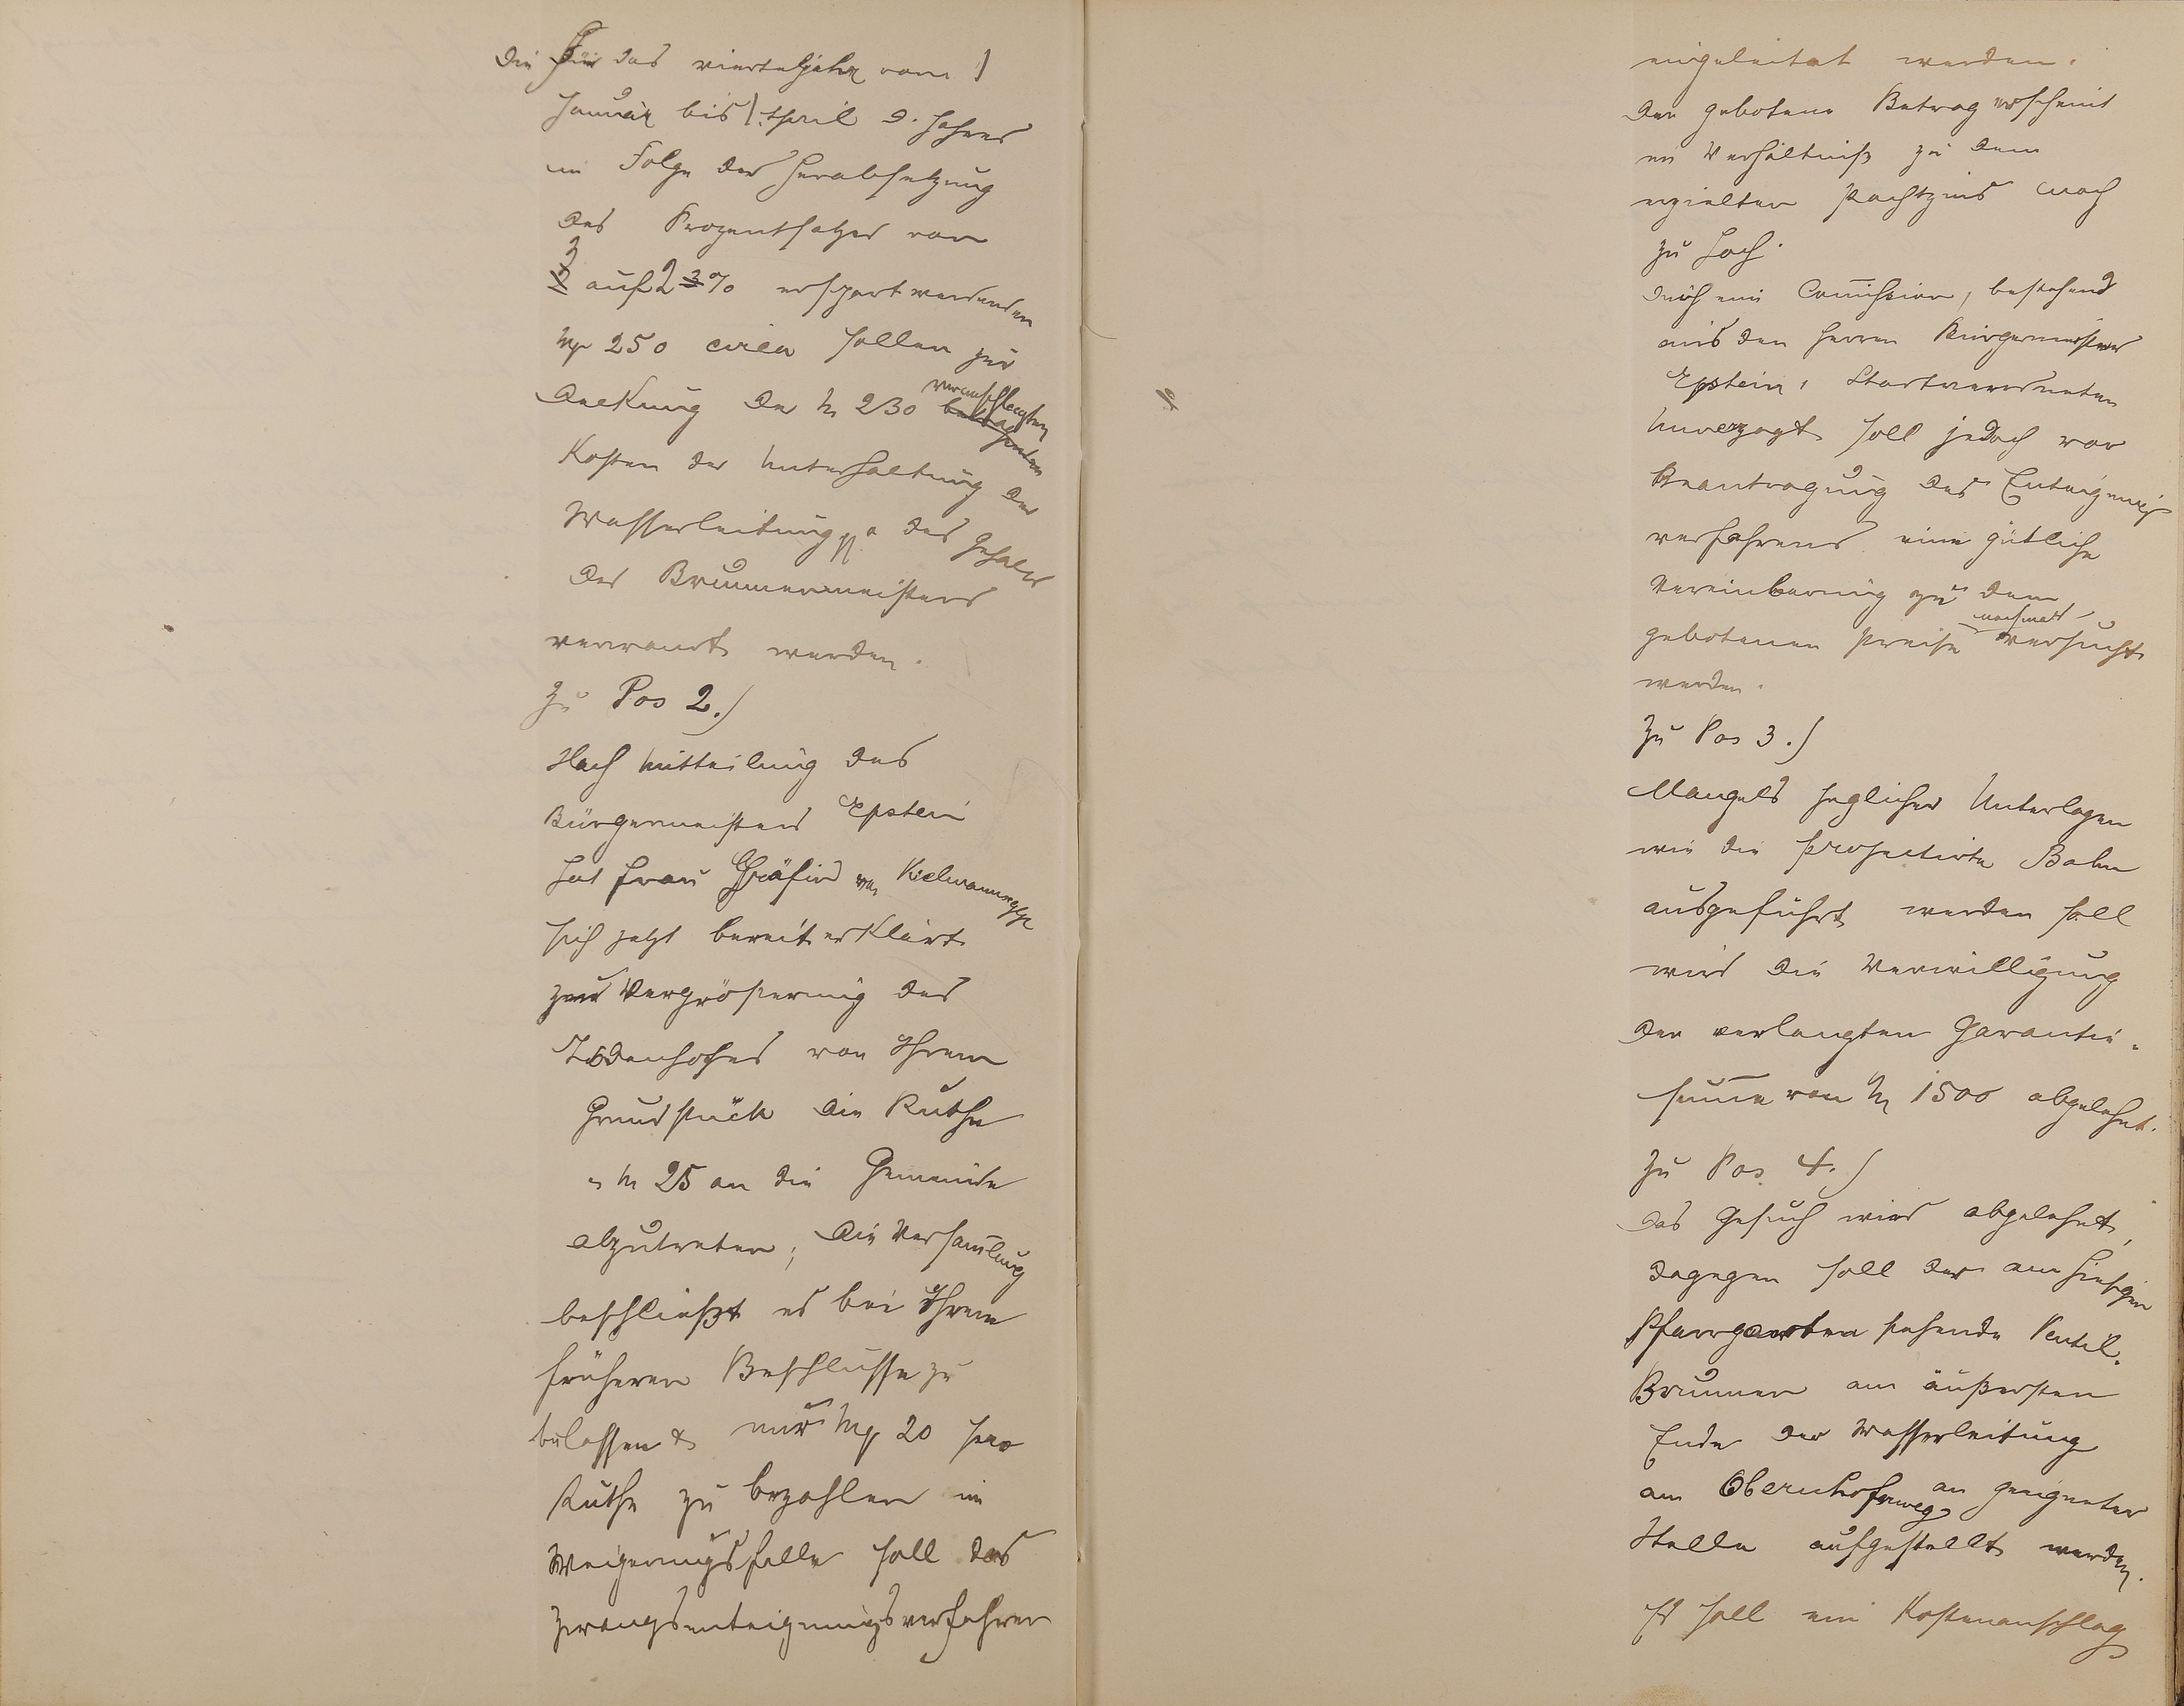 Die für das vierteljahr vom 1
Januar bis 1. April d. Jahres
in Folge der Herabsetzung
des Prozentsatzes von
3 auf 2 % erspart werdenden
Mk 250 circa sollen zur
Deckung der M 230 veranschlagten
Kosten der Unterhaltung der
Wasserleitung & des Gehaltes
des Brunnenmeisters
verwandt werden.
Zu Pos 2.)
Nach Mitteilung des
Bürgermeisters Epstein
hat Frau Gräfin von Kielmannsegge
sich jetzt bereit erklärt
zur Vergrößerung des
Todenhofes von Ihrem
Grundstück die Ruthe
à M 25 an die Gemeinde
abzutreten; die Versam̅lung
beschließt es bei Ihrem
früheren Beschlusse zu
belassen & nur Mk 20 pro
Ruthe zu bezahlen im
Weigerungsfalle soll das
Zwangsenteignungsverfahren
eingeleitet werden.
Der gebotene Betrag erscheint
im Verhältniß zu dem
erzielten Pachtzins noch
zu hoch.
Durch eine Com̅ission, bestehend
aus den Herren Bürgermeister
Epstein, Stadtverordneten
Unverzagt soll jedoch vor
Beantragung des Enteignungs
verfahrens eine gütliche
Vereinbarung zu dem
gebotenen Preise nochmals versucht
werden.
Zu Pos 3.)
Mangels jeglicher Unterlagen
wie die projectirte Bahn
ausgeführt werden soll
wird die Verwilligung
der verlangten Garantie-
sum̅e von M 1500 abgelehnt.
Zu Pos 4.)
Das Gesuch wird abgelehnt,
dagegen soll der am hiesigen
Pfarrgarten stehende Ventil-
Brunnen am äußersten
Ende der Wasserleitung
am Obernhöferweg an geeigneter
Stelle aufgestellt werden.
Es soll ein Kostenanschlag